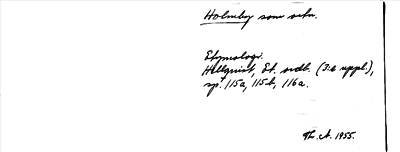 Holmby som ortn.
Etymologi.
Hellquist, Et. ordb. (3:e uppl.),
sp. 115a, 115b, 116a.
Th. A. 1955.